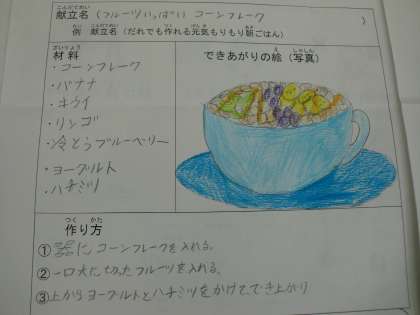 こんだてめい
献立名（フルーツいっぱい コーンフレーク ）
れい こんだてめい つく げんき あさ
例 献立名（だれでも作れる元気もりもり朝ごはん）
ざいりょう
材料
・コーンフレーク
・バナナ
・キウイ
・リンゴ
・冷とうブルーベリー
・ヨーグルト
・ハチミツ
え しゃしん
できあがりの絵（写真）
つく かた
作り方
①器に コーンフレークを入れる。
②一口大に切ったフルーツを入れる。
③上からヨーグルトとハチミツをかけて、でき上がり